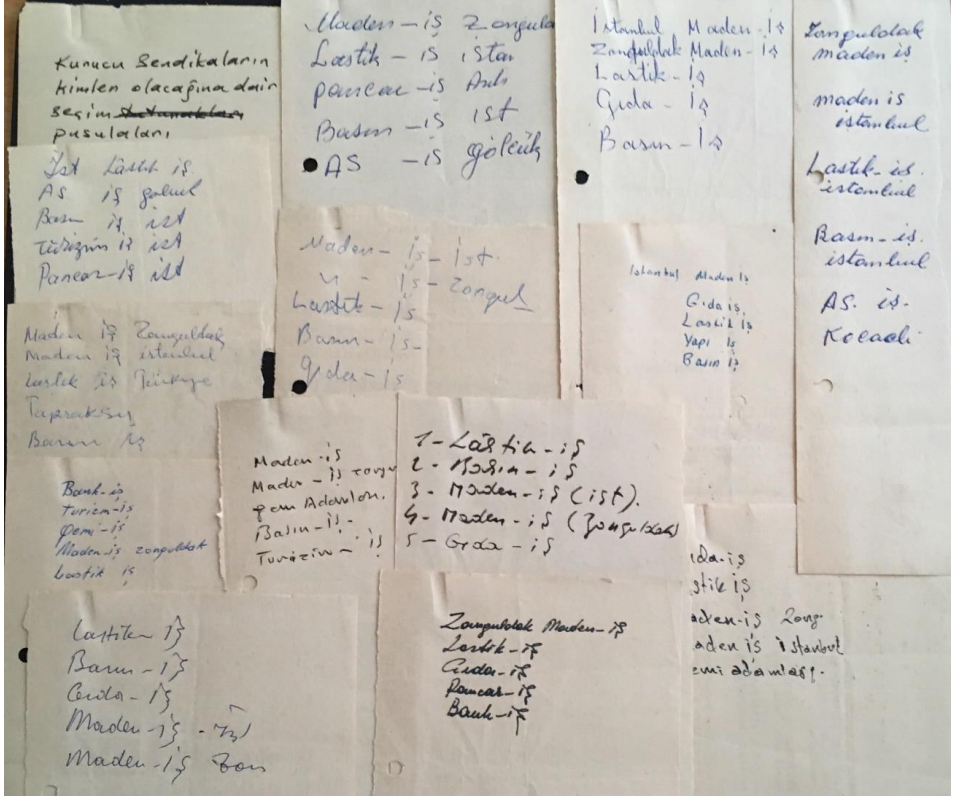 Kurucu Sendikaların
kimler olacağına dair
seçim tutanakları
pusulaları
Maden-iş Zongulda
Lastik-iş istan
pancar-iş Ank
Basın-iş ist
AS -iş gölcük
İstanbul Maden-İş
Zonguldak Maden-İş
Lastik-İş
Gıda-İş
Basın-İş
Zonguldak
maden iş
maden is
istanbul
Lastik-is.
istanbul
Basın-iş.
istanbul
AS. iş.
Kocaeli
İst Lastik iş
AS iş gölcük
Basın iş ist
Turizim iş ist
Pancar-iş ist
Maden-iş-ist.
" - iş-Zongul
Lastik-iş
Basın-iş-
gıda-iş
İstanbul Maden İş
Gıda iş
Lastik İş
Yapı İş
Basın İş
Maden iş Zonguldak
Maden iş istanbul
Lastik iş Türkiye
Topraksu
Basın iş
Bank-iş
Turizm-iş
Gemi-iş
Maden-iş zonguldak
Lastik iş
Maden-iş
Maden-iş zongu
gem Adamları.
Basın-iş.
Turizim-iş
1-Lâstik-iş
2-Basın-iş
3-Maden-iş (ist).
4-Maden-iş (Zonguldak)
5-Gıda-iş
ıda-iş
stik iş
aden-iş Zong.
aden iş istanbul
emi adamları.
Lastik-İş
Basın-İş
Gıda-İş
Maden-iş-İst
Maden-iş Zon
Zonguldak Maden-iş
Lastik-iş
Gıda-iş
Pancar-iş
Bank-iş